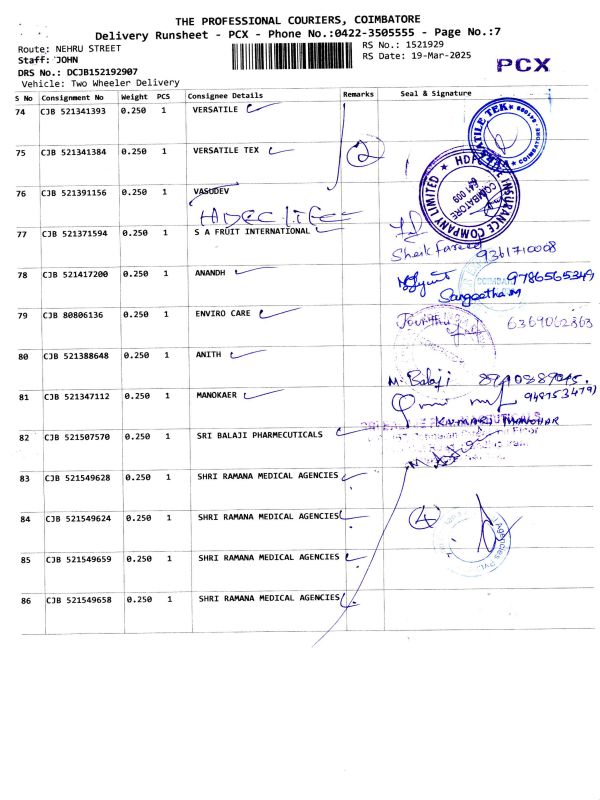 THE PROFESSIONAL COURIERS, COIMBATORE
Delivery Runsheet - PCX - Phone No.:0422-3505555 - Page No.:7
Route: NEHRU STREET
RS No.: 1521929
Staff: JOHN
RS Date: 19-Mar-2025
PCX
DRS No.: DCJB152192907
Vehicle: Two Wheeler Delivery
S No Consignment No Weight PCS Consignee Details Remarks Seal & Signature
74 CJB 521341393 0.250 1 VERSATILE
75 CJB 521341384 0.250 1 VERSATILE TEX 2
VERSATILE TEX COIMBATORE
76 CJB 521391156 0.250 1 VASUDEV
HDFC LIFE
HDFC LIFE INSURANCE COMPANY LIMITED COIMBATORE 641 009
77 CJB 521371594 0.250 1 S A FRUIT INTERNATIONAL
Sheik Fareed 9361710008
78 CJB 521417200 0.250 1 ANANDH 9786565349
Sangeetha M
79 CJB 80806136 0.250 1 ENVIRO CARE 6369062863
80 CJB 521388648 0.250 1 ANITH
M. Balaji
81 CJB 521347112 0.250 1 MANOKAER
KUMARI MANOHAR
82 CJB 521507570 0.250 1 SRI BALAJI PHARMECUTICALS
83 CJB 521549628 0.250 1 SHRI RAMANA MEDICAL AGENCIES
84 CJB 521549624 0.250 1 SHRI RAMANA MEDICAL AGENCIES 4
85 CJB 521549659 0.250 1 SHRI RAMANA MEDICAL AGENCIES
Agencies Pvt.
86 CJB 521549658 0.250 1 SHRI RAMANA MEDICAL AGENCIES